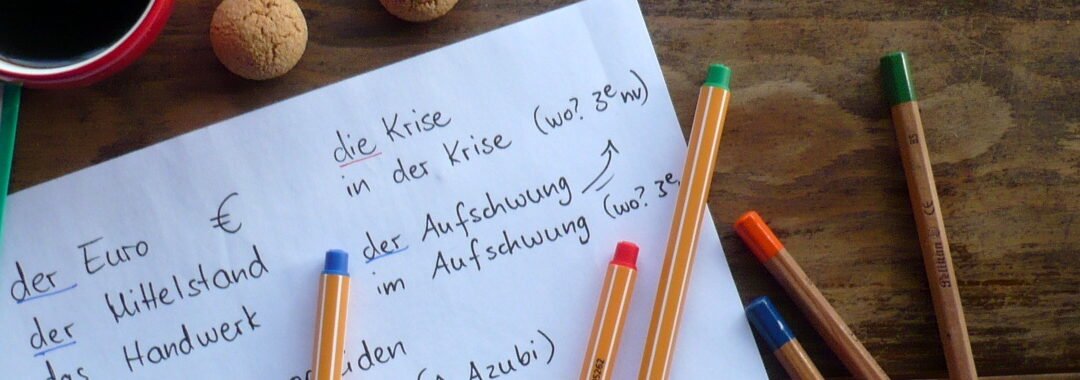 die Krise
in der Krise (wo? 3e nv)
der Aufschwung
im Aufschwung (wo? 3e
€
der Euro
der Mittelstand
das Handwerk
iden
Azubi)
Pelikan
CE